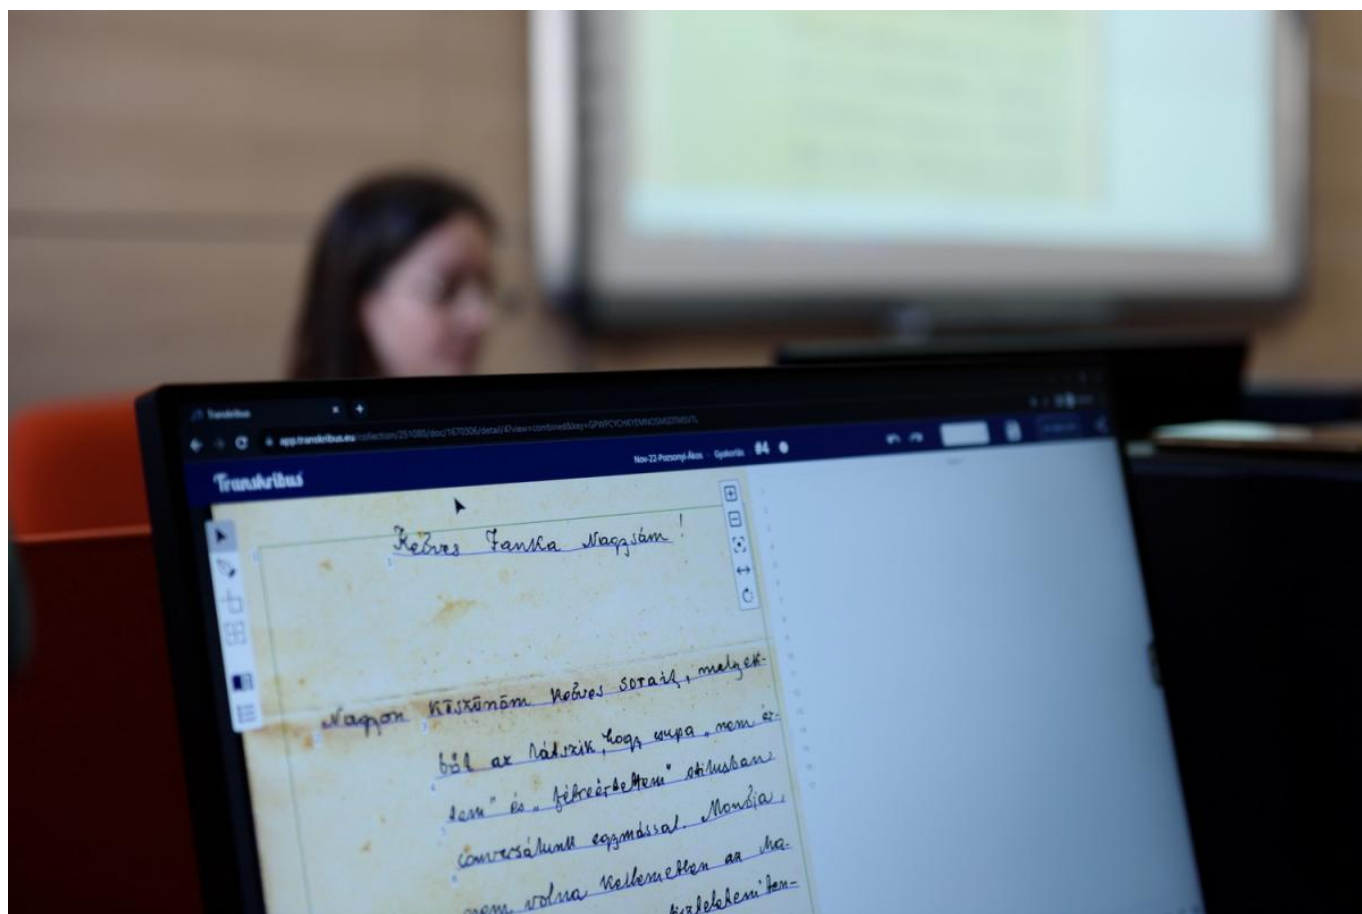 Transkribus
app.transkribus.eu/collection/251080/doc/1670506/detail/4?view=combined&key=
Transkribus
Nov-22-Pozsonyi-Ákos Gyakorlás #4
Kedves Fanka Nagysám!
Nagyon köszönöm kedves sorait, melyek-
ből az látszik, hogy csupa „nem ér-
tem" és „félreértettem" stilusban
conversálunk egymással. Mondja,
nem volna kellemetlen az ha-
tiszteletemi ten-